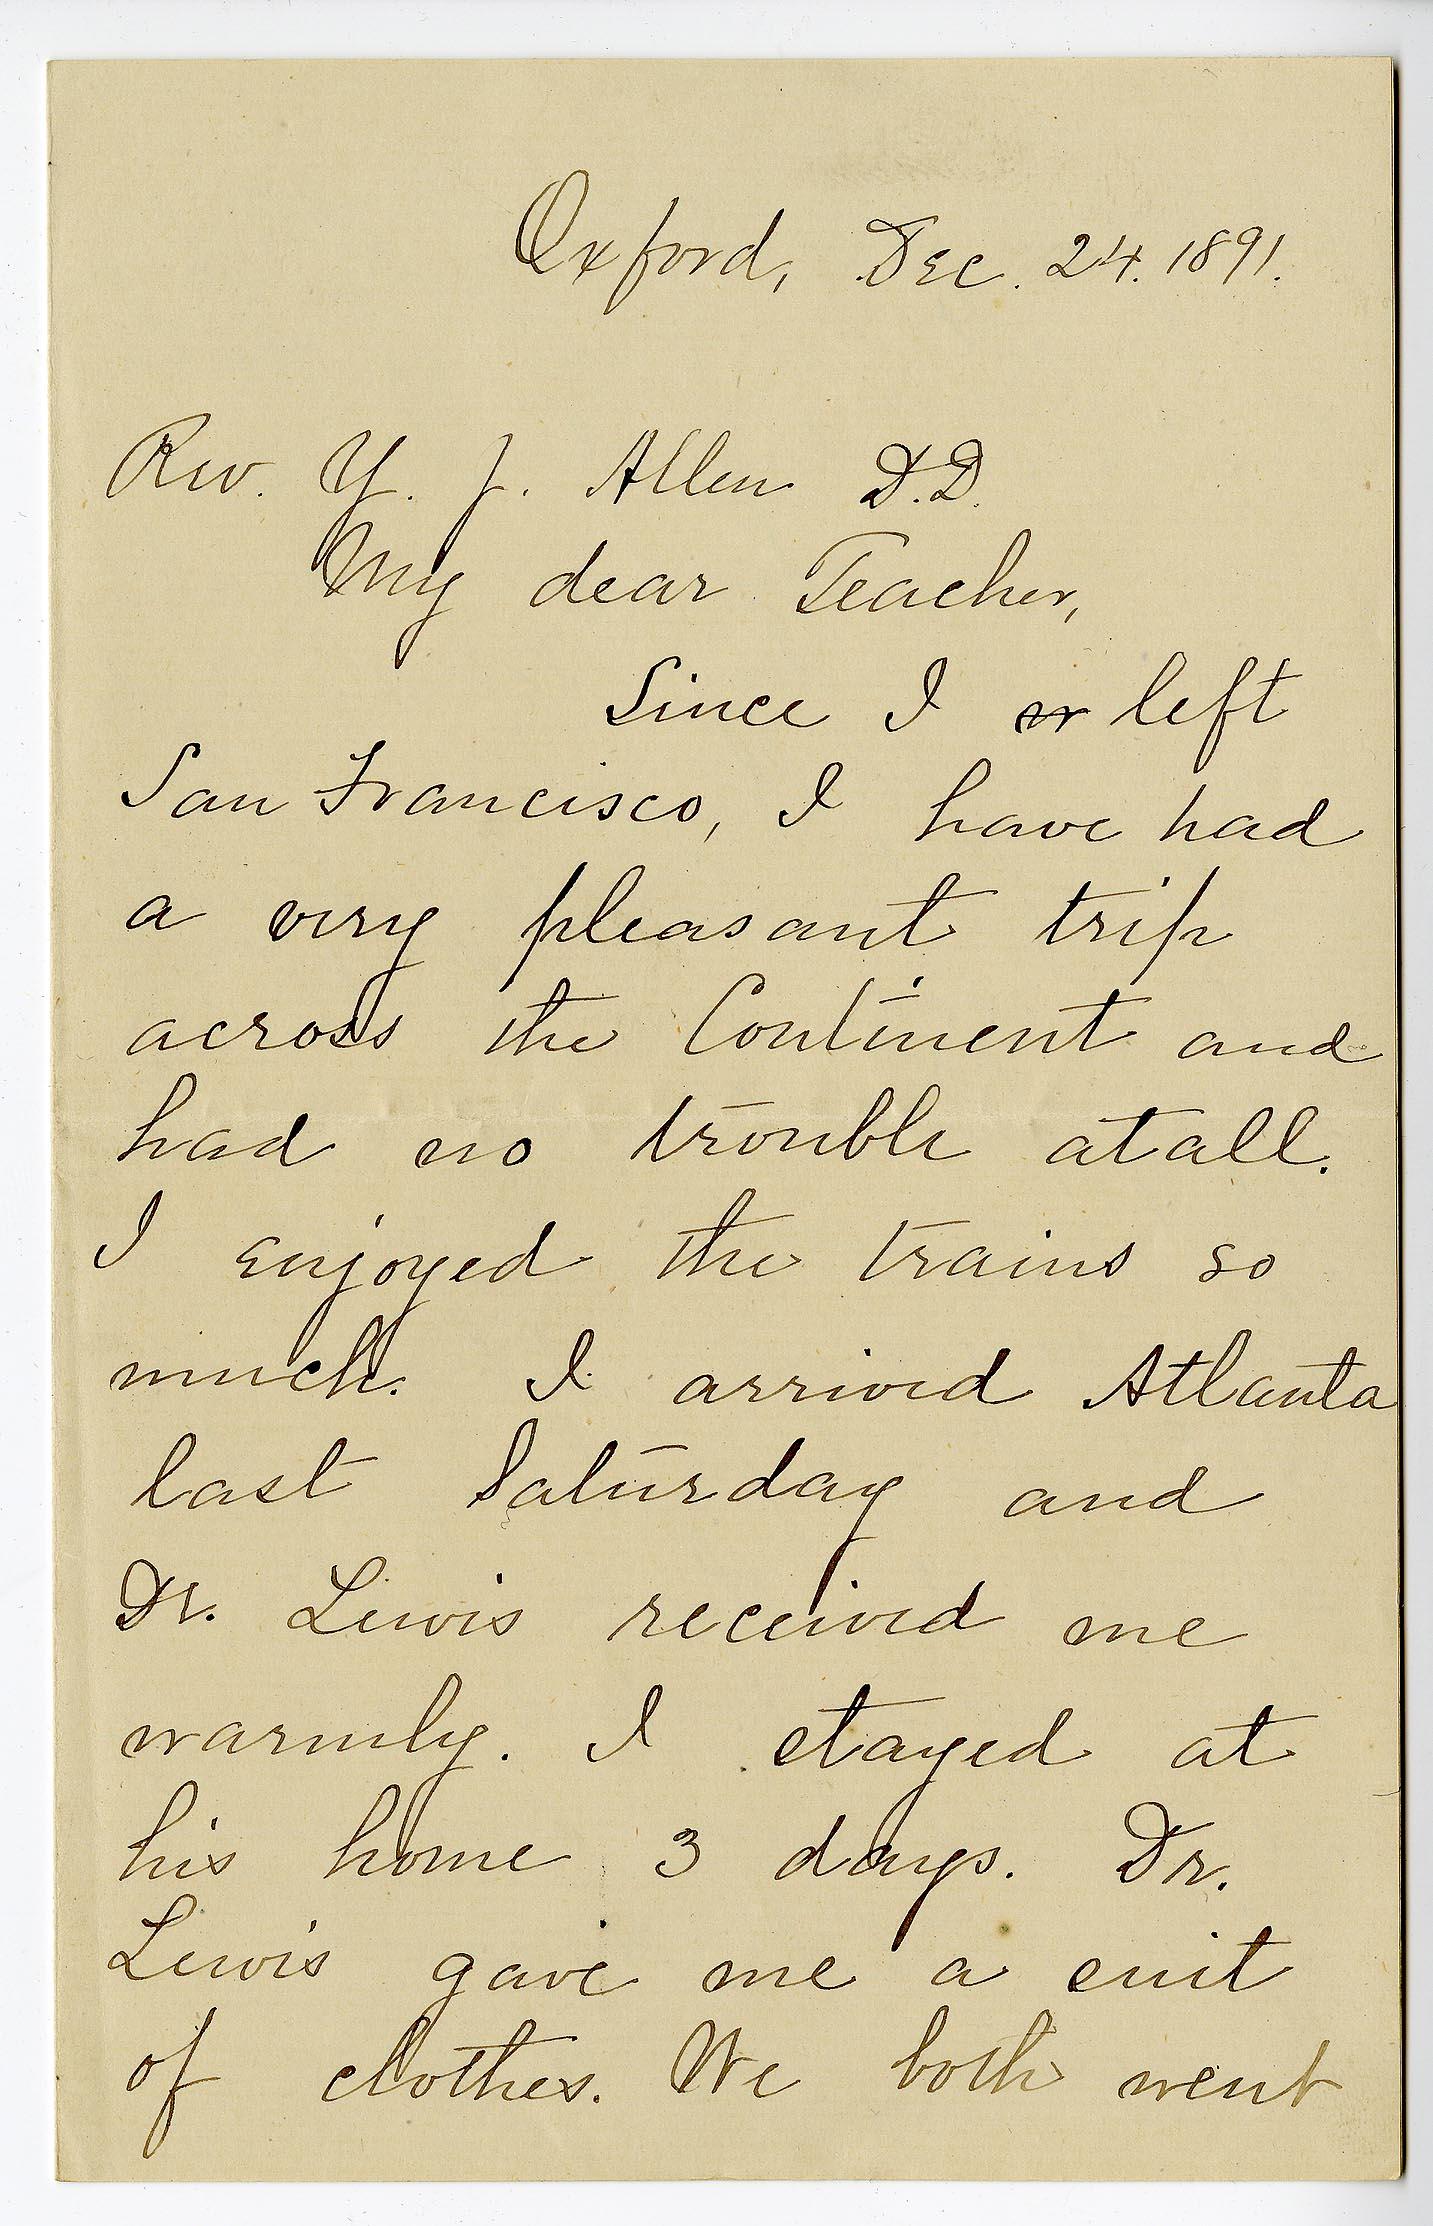 Oxford, Dec. 24. 1891.
Rev. Y. J. Allen D.D.
My dear Teacher,
Since I left
San Francisco, I have had
a very pleasant trip
across the Continent and
had no trouble atall.
I enjoyed the trains so
much. I arrived Atlanta
last Saturday and
Dr. Lewis received me
warmly. I stayed at
his home 3 days. Dr.
Lewis gave me a suit
of clothes. We both went